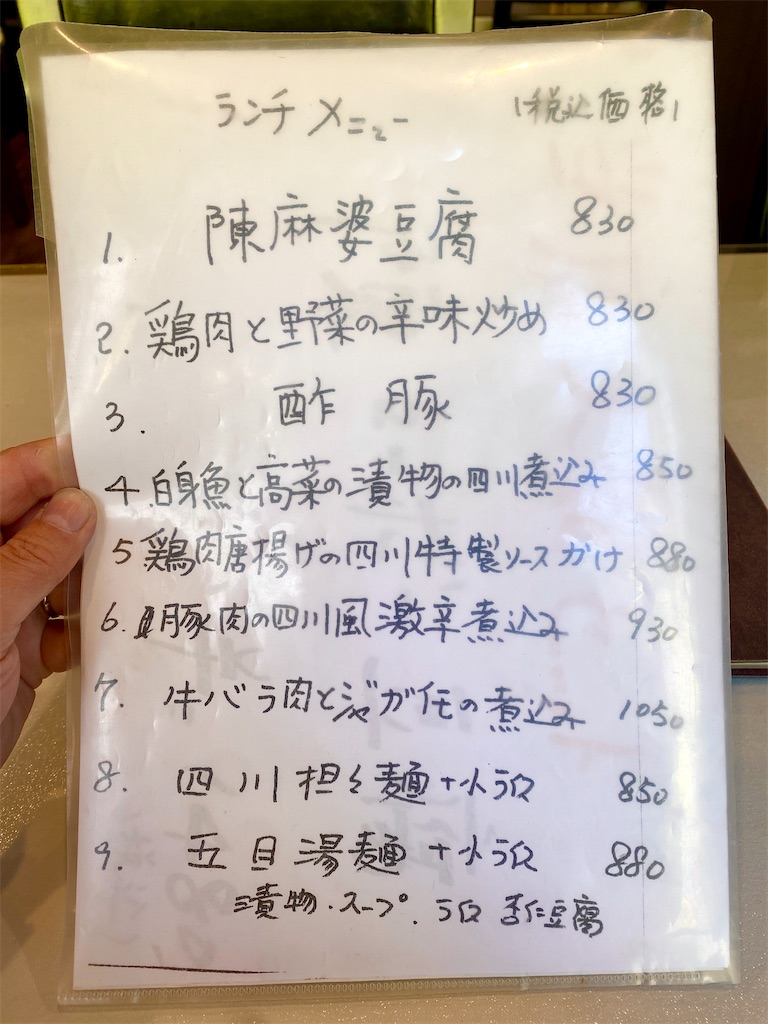 ランチメニュー (税込価格)
1. 陳麻婆豆腐 830
2. 鶏肉と野菜の辛味炒め 830
3. 酢豚 830
4 白身魚と高菜の漬物の四川煮込み 850
5 鶏肉唐揚げの四川特製ソースかけ 880
6. 豚肉の四川風激辛煮込み 930
7. 牛バラ肉とジャガ芋の煮込み 1050
8. 四川担々麺+小ライス 850
9. 五目湯麺+小ライス 880
漬物・スープ. ライス 杏仁豆腐